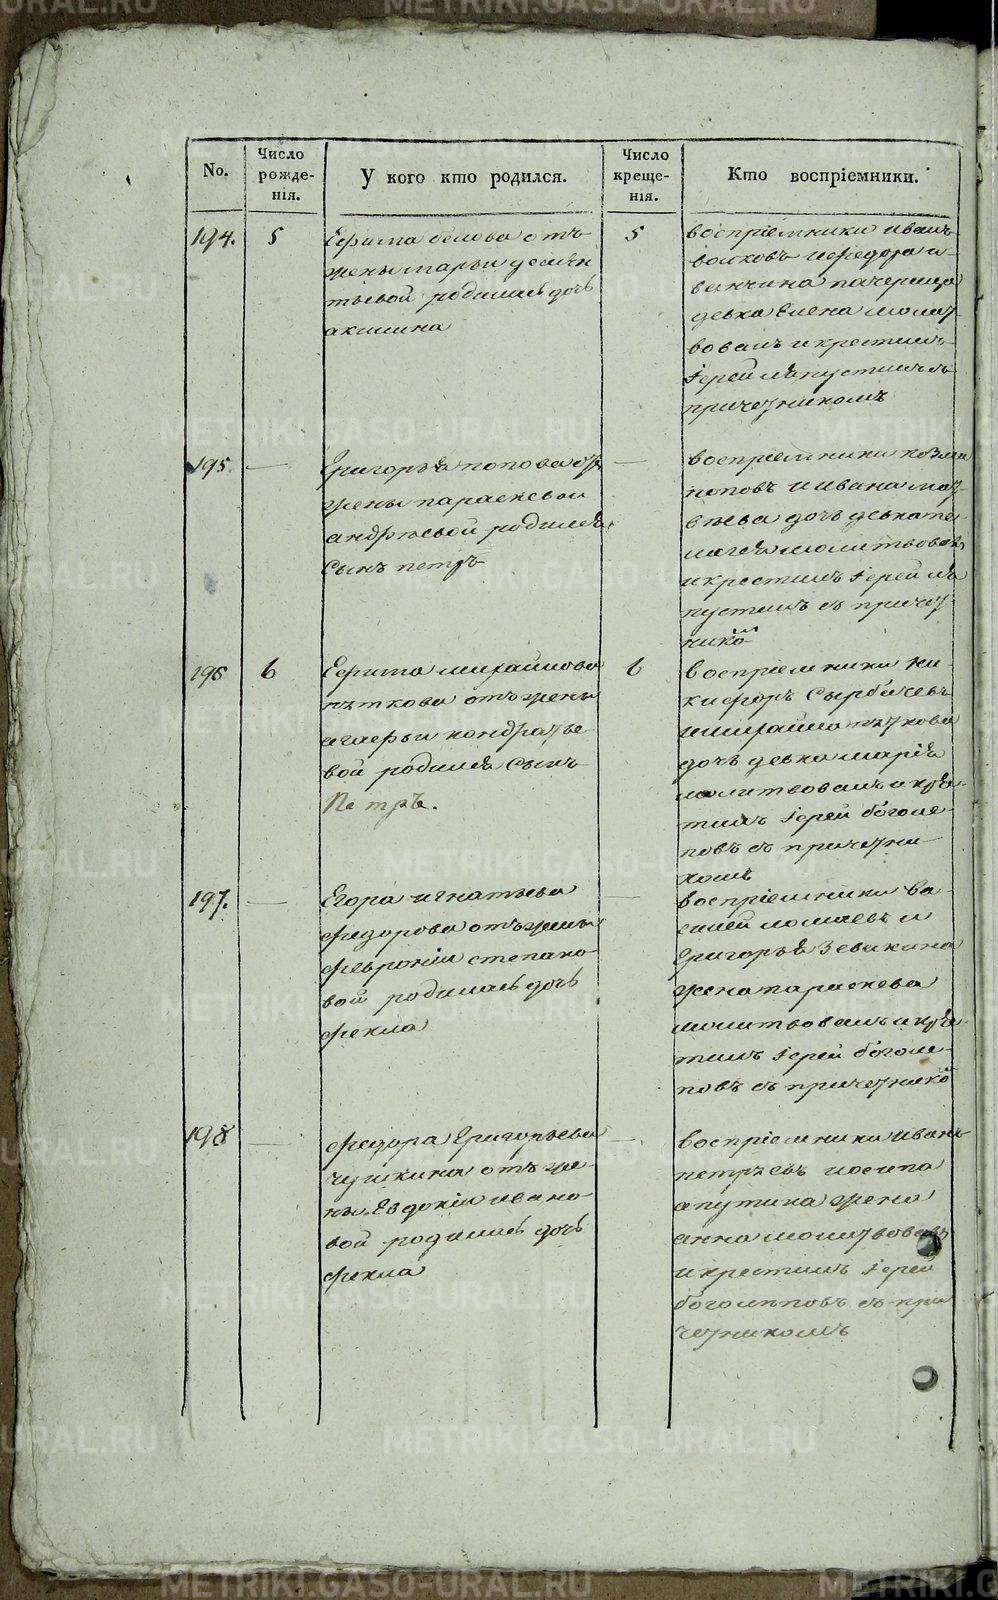 No.
Число рожде- нія.
У кого кто родился.
Число креще- нія.
Кто воспріемники.
194.
5
Ефима белова отъ
жены марьи демен
тьевой родилась дочь
акилина
5
воспріемники иванъ
волковъ и федора и-
ванчина
девка Елена молит
вовалъ и крестилъ
іерей лапустинъ съ
причетникомъ
195.
—
Григорья попова от
жены параскевы
андрѣевой родился
сынъ петръ
—
воспріемники козма
поповъ и ивана мат
вѣева дочь девка пе-
лагея молитвовалъ
и крестилъ іерей ла
пустинъ съ причет
ником
196
6
Ефима михайлова
пѣткова отъ жены
агафьи кондратье
вой родился сынъ
Петръ.
6
воспріемники ни-
кифоръ Сырбачевъ
и михайла пѣткова
дочь девка марія
молитвовалъ и кре-
тилъ іерей боголе-
повъ съ причетни-
комъ
197.
—
Егора игнатьева
федорова отъ жены
февроніи степано-
вой родилась дочь
фекла
—
воспріемники ва-
силей ломаевъ и
Григорья Зевакина
жена параскева
молитвовалъ и кре-
тилъ іерей боголе-
повъ съ причетнико
198
—
Федора Григорьева
чушкина отъ же-
ны Евдокіи ивано-
вой родилась дочь
фекла
—
воспріемники иванъ
петръевъ и осипа
апутина жена
анна молитвовалъ
и крестилъ іерей
боголѣповъ съ при
четникомъ
METRIKI.GASO-URAL.RU